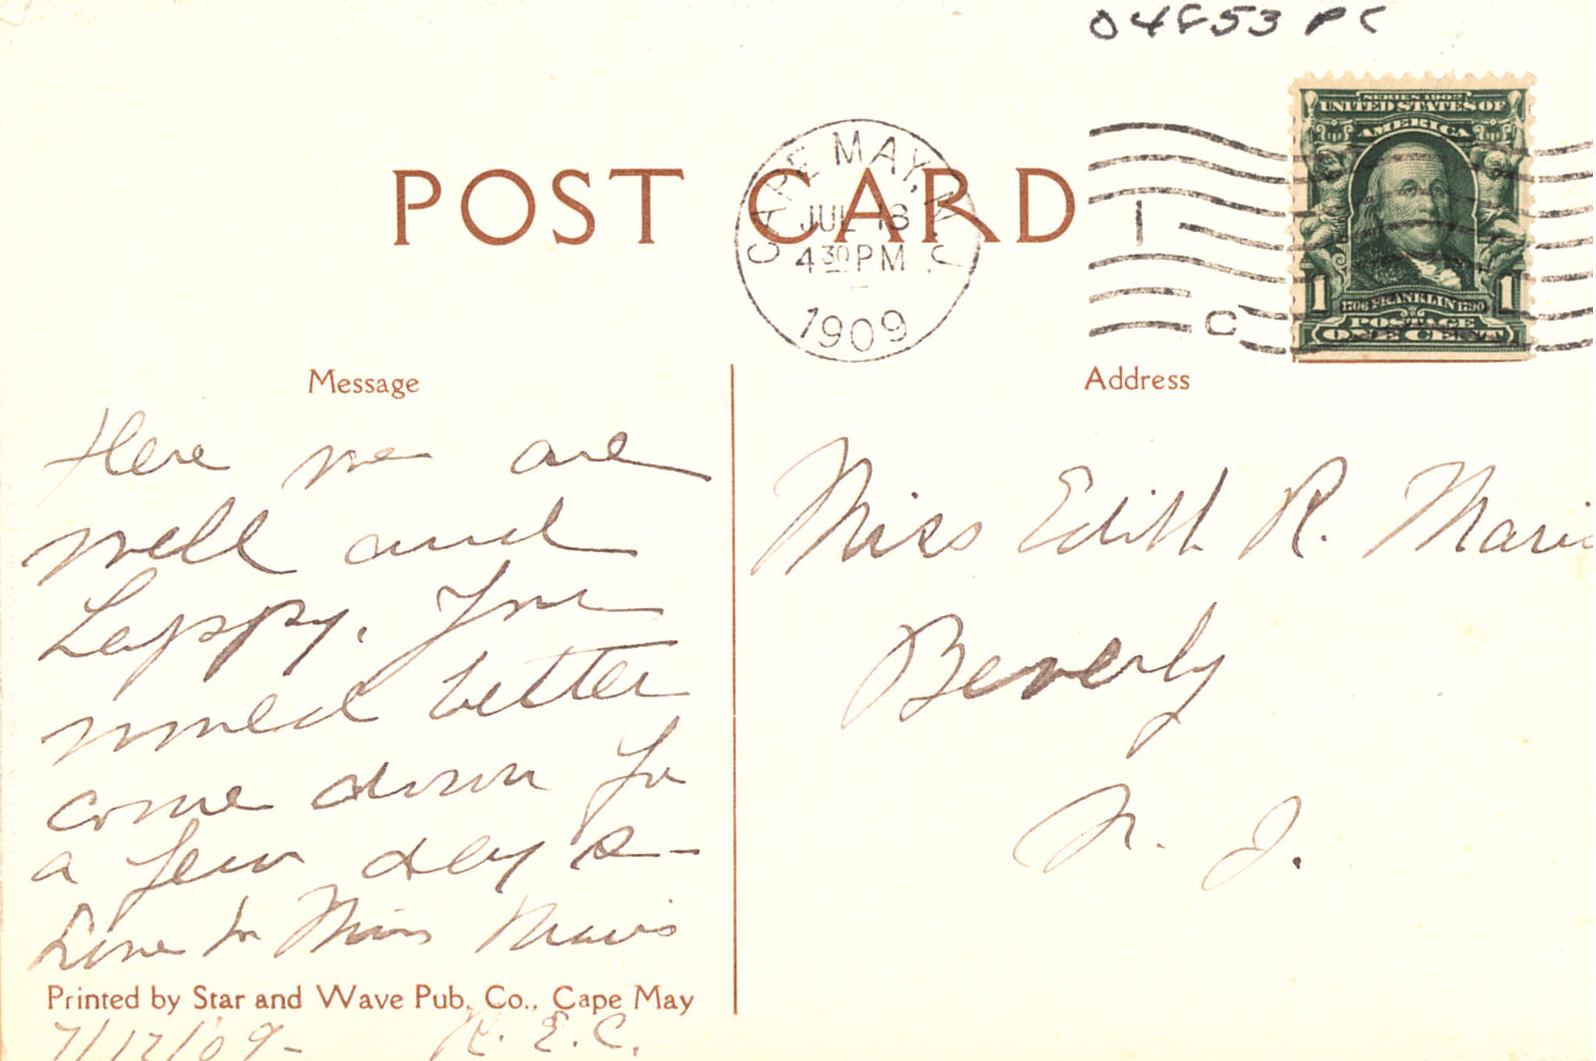 04853 PC
POST CARD
CAPE MAY, N.J.
JUL 13
4 30 PM
1909
1
C
SERIES 1902
UNITED STATES OF
AMERICA
1 1
1706 FRANKLIN 1790
POSTAGE
ONE CENT
Message
Address
Here we are
well and
happy. You
had better
come down for
a few days -
Love to Miss Maris
Miss Edith R. Maris
Beverly
N. J.
Printed by Star and Wave Pub. Co., Cape May
7/12/09- R. E. C.